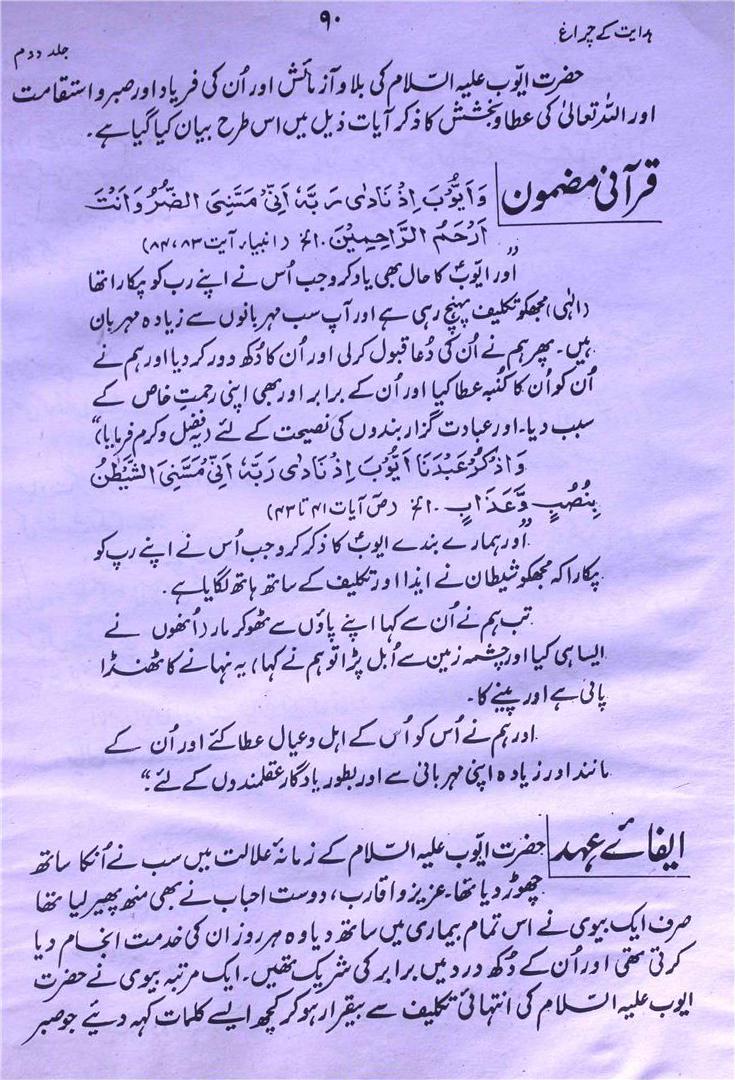 ۹۰
ہدایت کے چراغ
جلد دوم
حضرت ایّوب علیہ السّلام کی بلا و آزمائش اور اُن کی فریاد اور صبر و استقامت
اور اللہ تعالیٰ کی عطا و بخشش کا ذکر آیات ذیل میں اس طرح بیان کیا گیا ہے۔
قرآنی مضمون
وَاَیُّوْبَ اِذْ نَادٰى رَبَّہٗ اَنِّیْ مَسَّنِیَ الضُّرُّ وَاَنْتَ
اَرْحَمُ الرَّاحِمِیْنَ۔ الخ (انبیاء آیت ۸۳، ۸۴)
"اور ایّوبؑ کا حال بھی یاد کرو جب اُس نے اپنے رب کو پکارا تھا
(الٰہی) مجھ کو تکلیف پہنچ رہی ہے اور آپ سب مہربانوں سے زیادہ مہربان
ہیں۔ پھر ہم نے اُن کی دُعا قبول کر لی اور اُن کا دُکھ دور کر دیا اور ہم نے
اُن کو اُن کا کُنبہ عطا کیا اور اُن کے برابر اور بھی اپنی رحمتِ خاص کے
سبب دیا۔ اور عبادت گزار بندوں کی نصیحت کے لئے (یہ فضل و کرم فرمایا)"
وَاذْکُرْ عَبْدَنَا اَیُّوْبَ اِذْ نَادٰى رَبَّہٗ اَنِّیْ مَسَّنِیَ الشَّیْطٰنُ
بِنُصْبٍ وَّعَذَابٍ۔ الخ (صٓ آیات ۴۱ تا ۴۳)
"اور ہمارے بندے ایوبؑ کا ذکر کرو جب اُس نے اپنے رب کو
پکارا کہ مجھ کو شیطان نے ایذا اور تکلیف کے ساتھ ہاتھ لگایا ہے۔
تب ہم نے اُن سے کہا اپنے پاؤں سے ٹھوکر مار (اُنھوں نے
ایسا ہی کیا اور چشمہ زمین سے اُبل پڑا تو ہم نے کہا، یہ نہانے کا ٹھنڈا
پانی ہے اور پینے کا۔
اور ہم نے اُس کو اُس کے اہل و عیال عطا کئے اور اُن کے
مانند اور زیادہ اپنی مہربانی سے اور بطور یادگار عقلمندوں کے لئے۔"
ایفائے عہد
حضرت ایّوب علیہ السّلام کے زمانۂ علالت میں سب نے اُنکا ساتھ
چھوڑ دیا تھا۔ عزیز و اقارب، دوست احباب نے بھی منھ پھیر لیا تھا
صرف ایک بیوی نے اس تمام بیماری میں ساتھ دیا وہ ہر روز ان کی خدمت انجام دیا
کرتی تھی اور اُن کے دُکھ درد میں برابر کی شریک تھیں۔ ایک مرتبہ بیوی نے حضرت
ایوب علیہ السّلام کی انتہائی تکلیف سے بیقرار ہو کر کچھ ایسے کلمات کہہ دیئے جو صبر